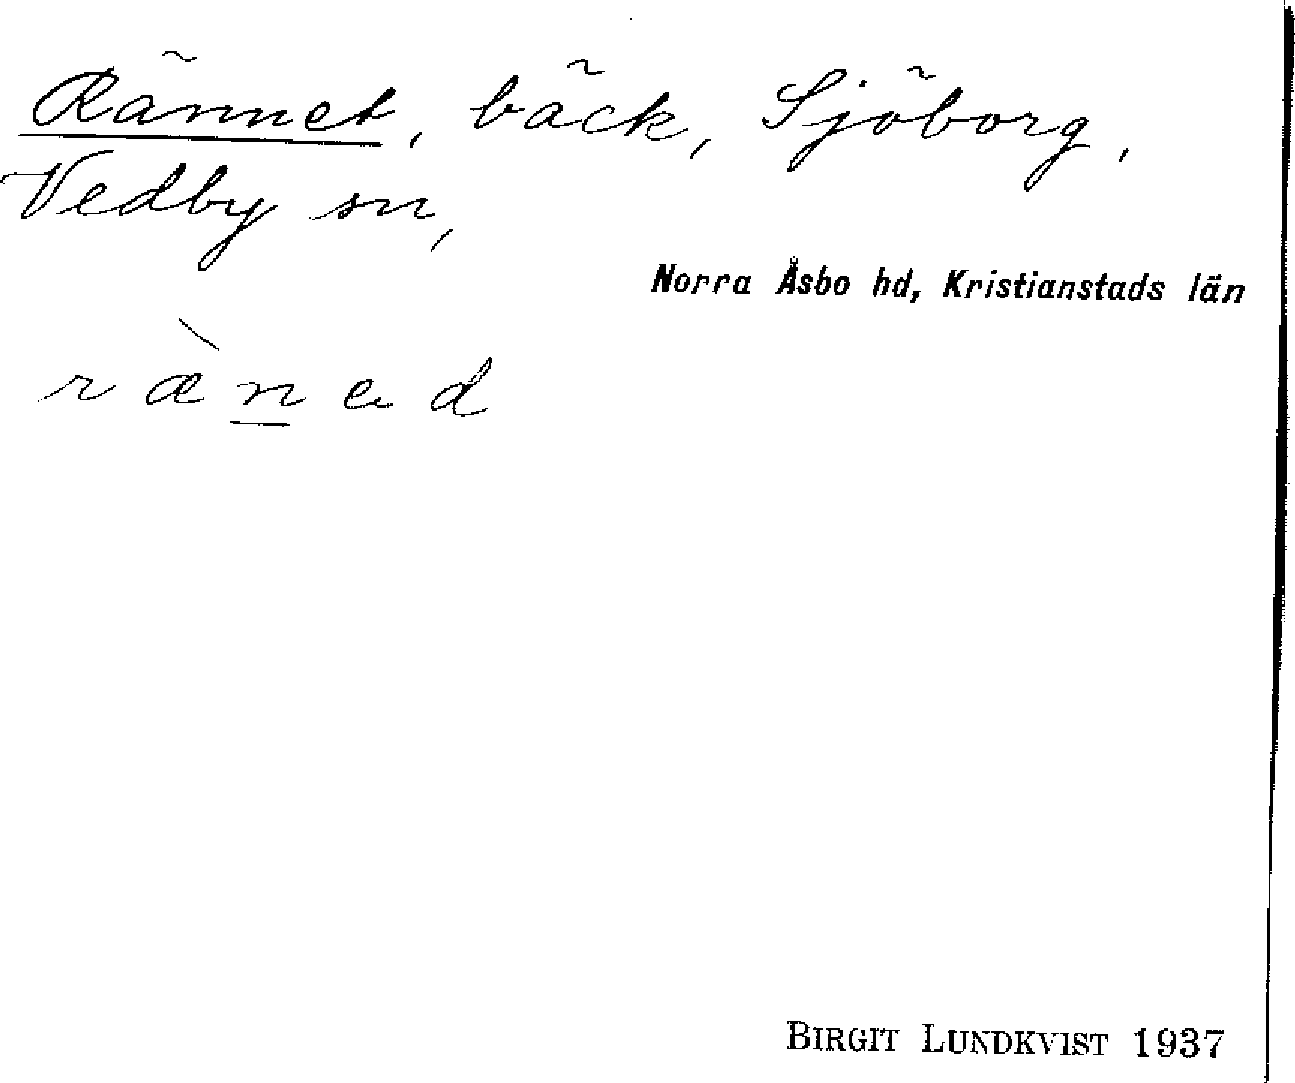 Rännet, bäck, Sjöborg,
Vedby sn,
Norra Åsbo hd, Kristianstads län
ræ̀n̲ed
BIRGIT LUNDKVIST 1937